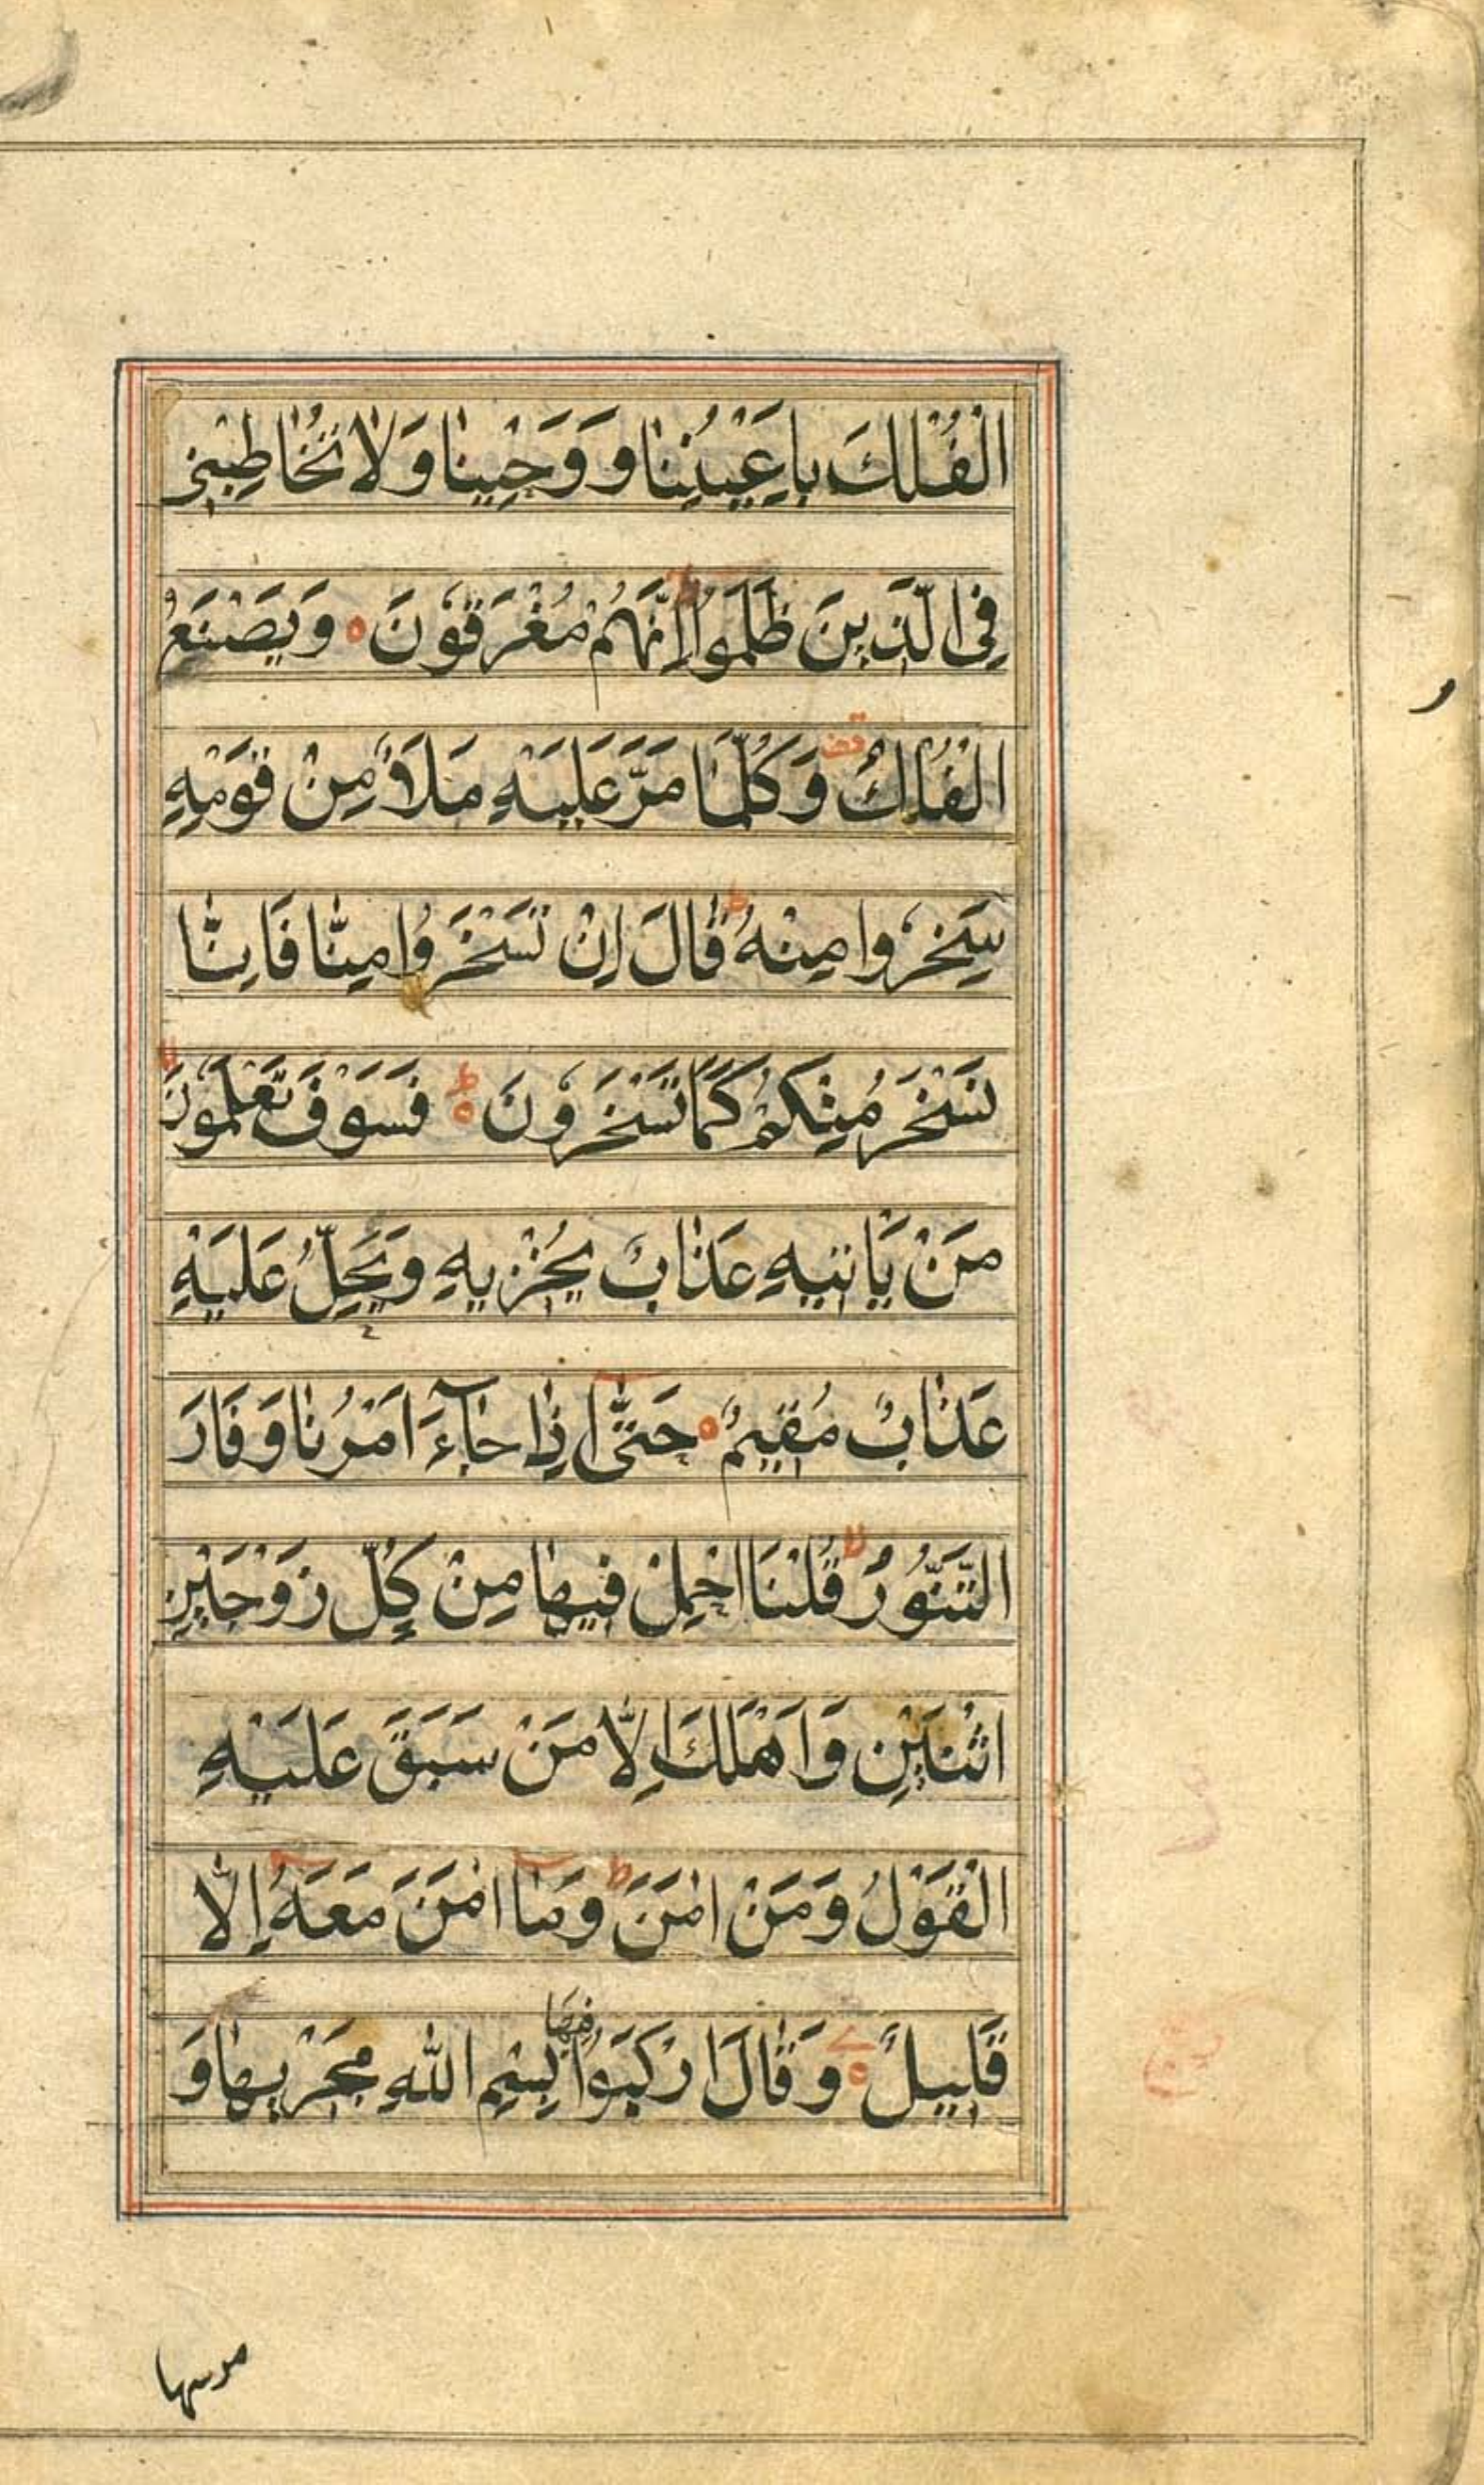 الْفُلْكَ بِاَعْيُنِنَا وَ وَحْيِنَا وَ لَا تُخَاطِبْنِىْ
فِى الَّذِيْنَ ظَلَمُوْا ط اِنَّهُمْ مُغْرَقُوْنَ ه وَ يَصْنَعُ
الْفُلْكَ قف وَ كُلَّمَا مَرَّ عَلَيْهِ مَلَاٌ مِنْ قَوْمِهٖ
سَخِرُوْا مِنْهُ ط قَالَ اِنْ تَسْخَرُوْا مِنَّا فَاِنَّا
نَسْخَرُ مِنْكُمْ كَمَا تَسْخَرُوْنَ ط ه فَسَوْفَ تَعْلَمُوْنَ لا
مَنْ يَّاْتِيْهِ عَذَابٌ يُخْزِيْهِ وَ يَحِلُّ عَلَيْهِ
عَذَابٌ مُقِيْمٌ ه حَتّٰى اِذَا جَآءَ اَمْرُنَا وَ فَارَ
التَّنُّوْرُ لا قُلْنَا احْمِلْ فِيْهَا مِنْ كُلٍّ زَوْجَيْنِ
اثْنَيْنِ وَ اَهْلَكَ اِلَّا مَنْ سَبَقَ عَلَيْهِ
الْقَوْلُ وَ مَنْ اٰمَنَ ط وَ مَا اٰمَنَ مَعَهٗ اِلَّا
قَلِيْلٌ ه وَ قَالَ ارْكَبُوْا فِيْهَا بِسْمِ اللّٰهِ مَجْرٖيهَا وَ
مرسها